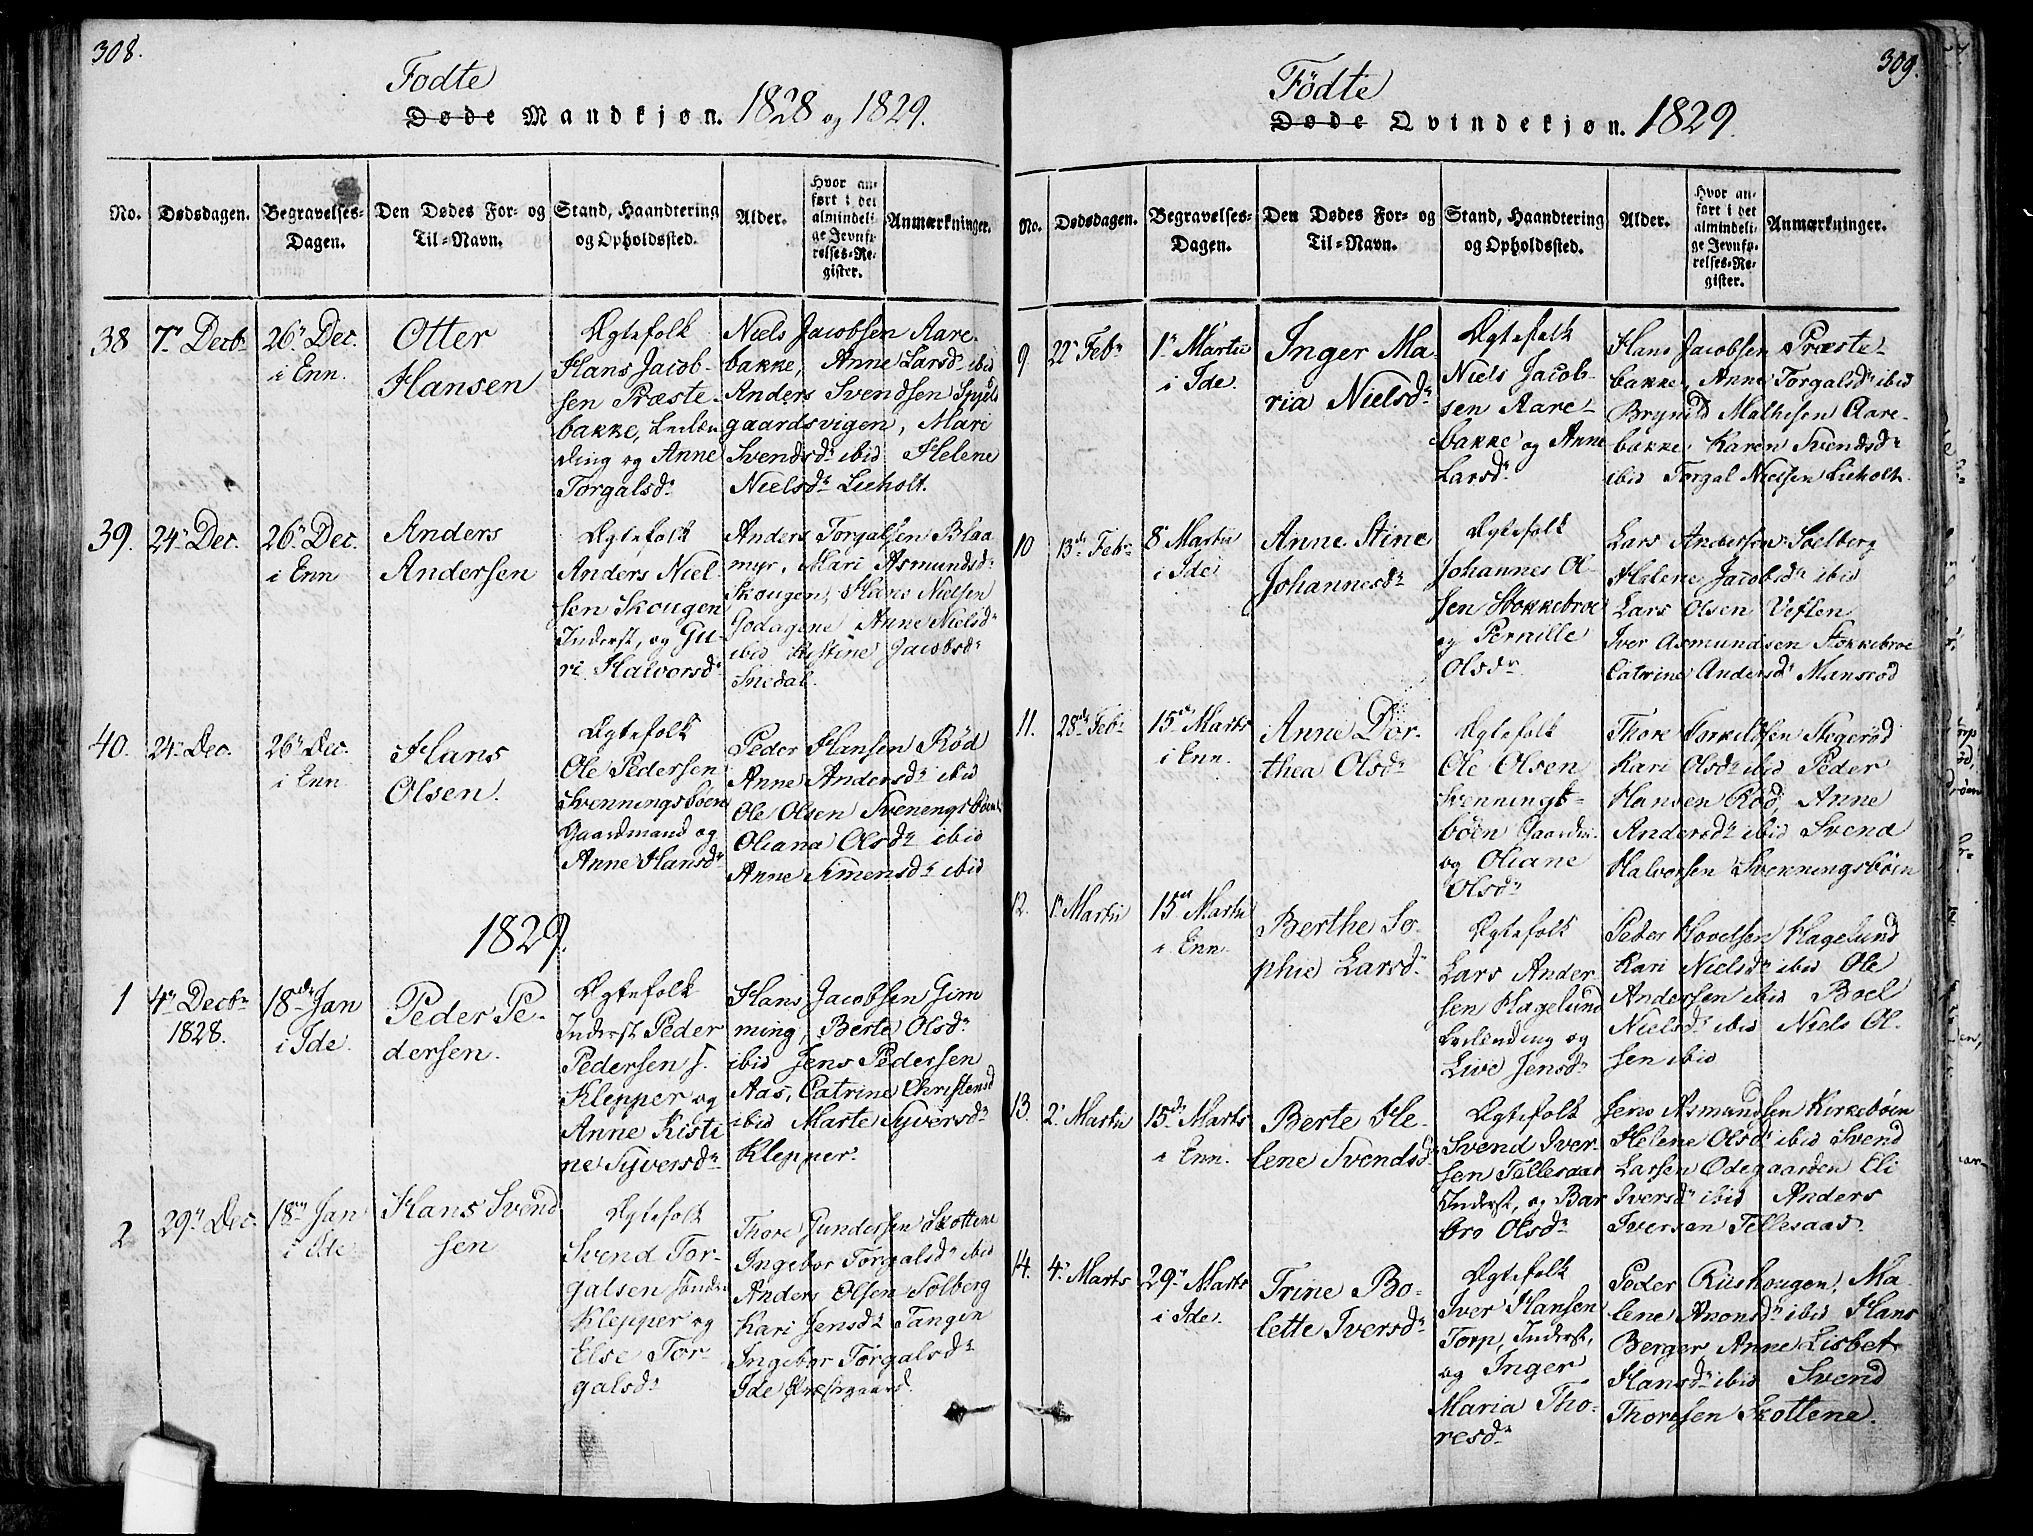 308.
Fodte
Døde Mandkjøn. 1828 og 1829.
No.
Dødsdagen.
Begravelses-
Dagen.
Den Dødes For- og
Til-Navn.
Stand, Haandtering
og Opholdssted.
Alder.
Hvor an-
ført i det
almindeli-
ge Jevnfø-
relses-Re-
gister.
Anmærkninger.
38
7de Decbr
26de Dec.
i Enn.
Otter
Hansen
Ægtefolk
Hans Jacob-
sen Præste-
bakke, Leilæn
ding og Anne
Torgalsdr
Niels Jacobsen Aare-
bakke, Anne Larsdr ibid
Anders Svendsen Spjels
gaardsvigen, Mari
Svendsdr ibid Helene
Nielsdr Lieholt.
39.
24de Dec.
26de Dec.
i Enn
Anders
Andersen
Ægtefolk
Anders Niel-
sen Skougen
Inderst, og Gu-
ri Halvorsdr
Anders Torgalsen Blaa
myr, Mari Asmundsdr
Skougen, Hans Nielsen
Godagene Anne Nielsdr
ibid Kistine Jacobsdr
Snedal.
40.
24de Dec.
26de Dec.
i Enn
Hans
Olsen.
Ægtefolk
Ole Pedersen
Svenningsböen
Gaardmand og
Anne Hansdr
Peder Hansen Röd
Anne Andersdr ibid
Ole Olsen Sveningsböen
Oliana Olsdr ibid
Anne Simensdr ibid
1829.
1
4de Decbr
1828.
18de Jan
i Ide.
Peder Pe-
dersen.
Ægtefolk
Inderst Peder
Pedersen S.
Klepper og
Anne Kisti
ne Syversdr
Hans Jacobsen Gim
ming, Berte Olsdr
ibid Jens Pedersen
Aas, Catrine Christensd
ibid Marte Syversdr
Klepper.
2
29de Dec.
18de Jan
i Ide
Hans Svend
sen
Ægtefolk
Svend Tor-
galsen söndre
Klepper og
Else Tor-
galsdr
Thore Gundersen Skottene
Ingebor Torgalsdr ibid
Anders Olsen Solberg
Kari Jensdr Tangen
Ingebor Torgalsdr
Ide Præstegaard.
309.
Födte
Døde Qvindekjøn. 1829.
No.
Dødsdagen.
Begravelses-
Dagen.
Den Dødes For- og
Til-Navn.
Stand, Haandtering
og Opholdssted.
Alder.
Hvor an-
ført i det
almindeli-
ge Jevnfø-
relses-Re-
gister.
Anmærkninger.
9
22de Febr
1de Martii
i Ide.
Inger Ma-
ria Nielsdr
Ægtefolk
Niels Jacob-
sen Aare-
bakke og Anne
Larsdr
Hans Jacobsen Præste-
bakke, Anne Torgalsdr ibid
Brynild Mathisen Aare-
bakke Karen Svendsdr
ibid Torgal Nielsen Lieholt.
10
13de Febr
8de Martii
i Ide
Anne Stine
Johannesdr
Ægtefolk
Johannes Ol-
sen Stokkebroe
og Pernille
Olsdr
Lars Andersen Soelberg
Helene Jacobsdr ibid
Lars Olsen Veften
Iver Asmundsen Stokkebroe
Catrine Andersdr Mansröd
11.
28de Febr
15de Marts
i Enn.
Anne Dor-
thea Olsdr
Ægtefolk
Ole Olsen
Svennings-
böen Gaardm.
og Oliane
Olsdr
Thore Torkildsen Stegeröd
Kari Olsdr ibid Peder
Hansen Röd, Anne
Andersdr ibid Svend
Halvorsen Svenningsböen
12.
1de Martii
15de Martii
i Enn.
Berthe So-
phie Larsdr
Ægtefolk
Lars Ander-
sen Hagelund
Leilending og
Live Jensdr
Peder Hovelsen Hagelund
Kari Nielsdr ibid Ole
Andersen ibid Boel
Nielsdr ibid Niels Ol-
sen ibid
13.
2de Martii
15de Marts
i Enn.
Berte He-
lene Svendsdr
Ægtefolk
Svend Iver-
sen Tellesaas
Inderst, og Bar
bro Olsdr
Jens Asmundsen Kirkeböen
Helene Olsdr ibid Svend
Larsen Ödegaarden Eli
Iversdr ibid Anders
Iversen Tellesaas.
14.
4de Marts
29de Marts
i Ide.
Trine Bo-
lette Iversdr
Ægtefolk
Iver Hansen
Torp, Inderst,
og Inger
Maria Tho-
resdr
Peder Riishougen, Ma-
lene Anonsdr ibid Hans
Berger Anne Lisbet
Hansdr ibid Svend
Thoresen Skottene.